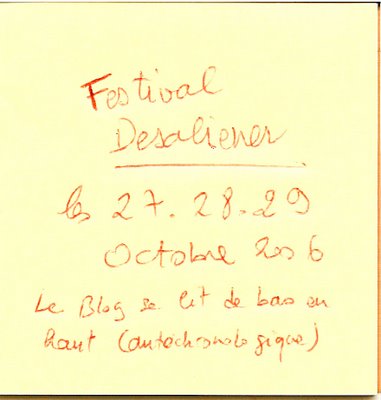 Festival
Desaliener
les 27.28.29
Octobre 2006
Le Blog se lit de bas en
haut (antéchronologique)